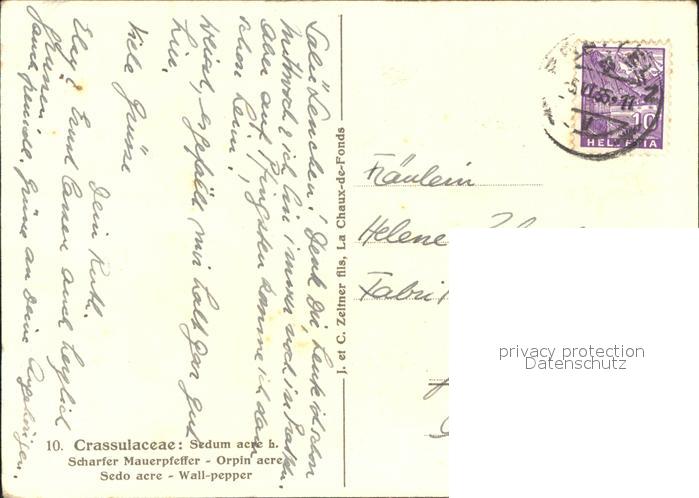 Salü Lenchen! Denk Dir, heute ist schon
Mittwoch & ich bin immer noch in
Aber auf Pfingsten komme ich dann
schon heim!
Weisst, es gefällt mir halt gar gut
hier.
Viele Grüsse
Dein Ruthli.
Elsy & Ernst lassen auch herzlich
grüssen.
Grüsse an Deine Angehörigen.
J. et C. Zeltner fils, La Chaux-de-Fonds
10. Crassulaceae: Sedum acre L.
Scharfer Mauerpfeffer - Orpin acre
Sedo acre - Wall-pepper
10
HELVETIA
Fräulein
Helene
Fabri
privacy protection
Datenschutz